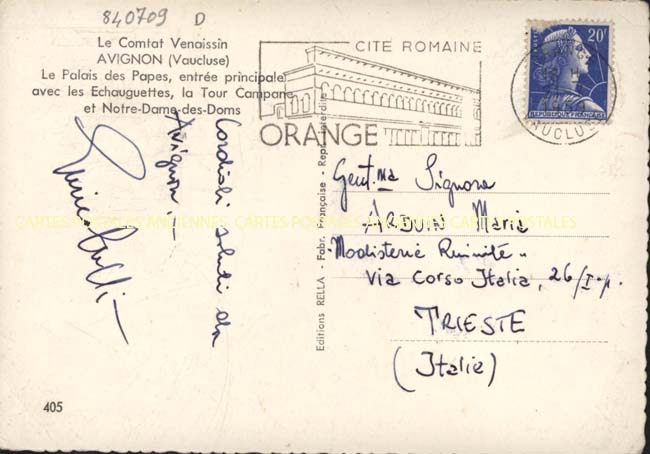 840709 D
Le Comtat Venaissin
AVIGNON (Vaucluse)
Le Palais des Papes, entrée principale
avec les Echauguettes, la Tour Campane
et Notre-Dame-des-Doms
CITE ROMAINE
ORANGE
20F
POSTES
REPUBLIQUE FRANÇAISE
VAUCLUSE
Cordiali saluti da
Avignon
Gent.ma Signora
ARDUIN Maria
"Modisterie Riunite"
Via Corso Italia, 26/I p.
TRIESTE
(Italie)
Editions RELLA - Fabr. Française - Rep. Interdite
CARTES POSTALES ANCIENNES, CARTES POSTALES ANCIENNES, CARTES POSTALES
405